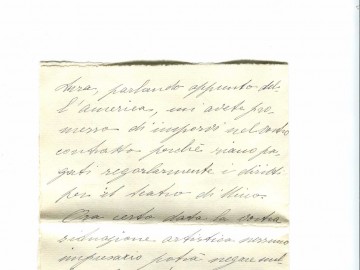 sera, parlando appunto del-
l'america, mi avete pro-
messo di imporvi nel vostro
contratto perchè siano pa-
gati regolarmente i diritti
per il teatro di Mineo.
Ora certo data la vostra
situazione artistica nessuno
impresario potrà negare nel